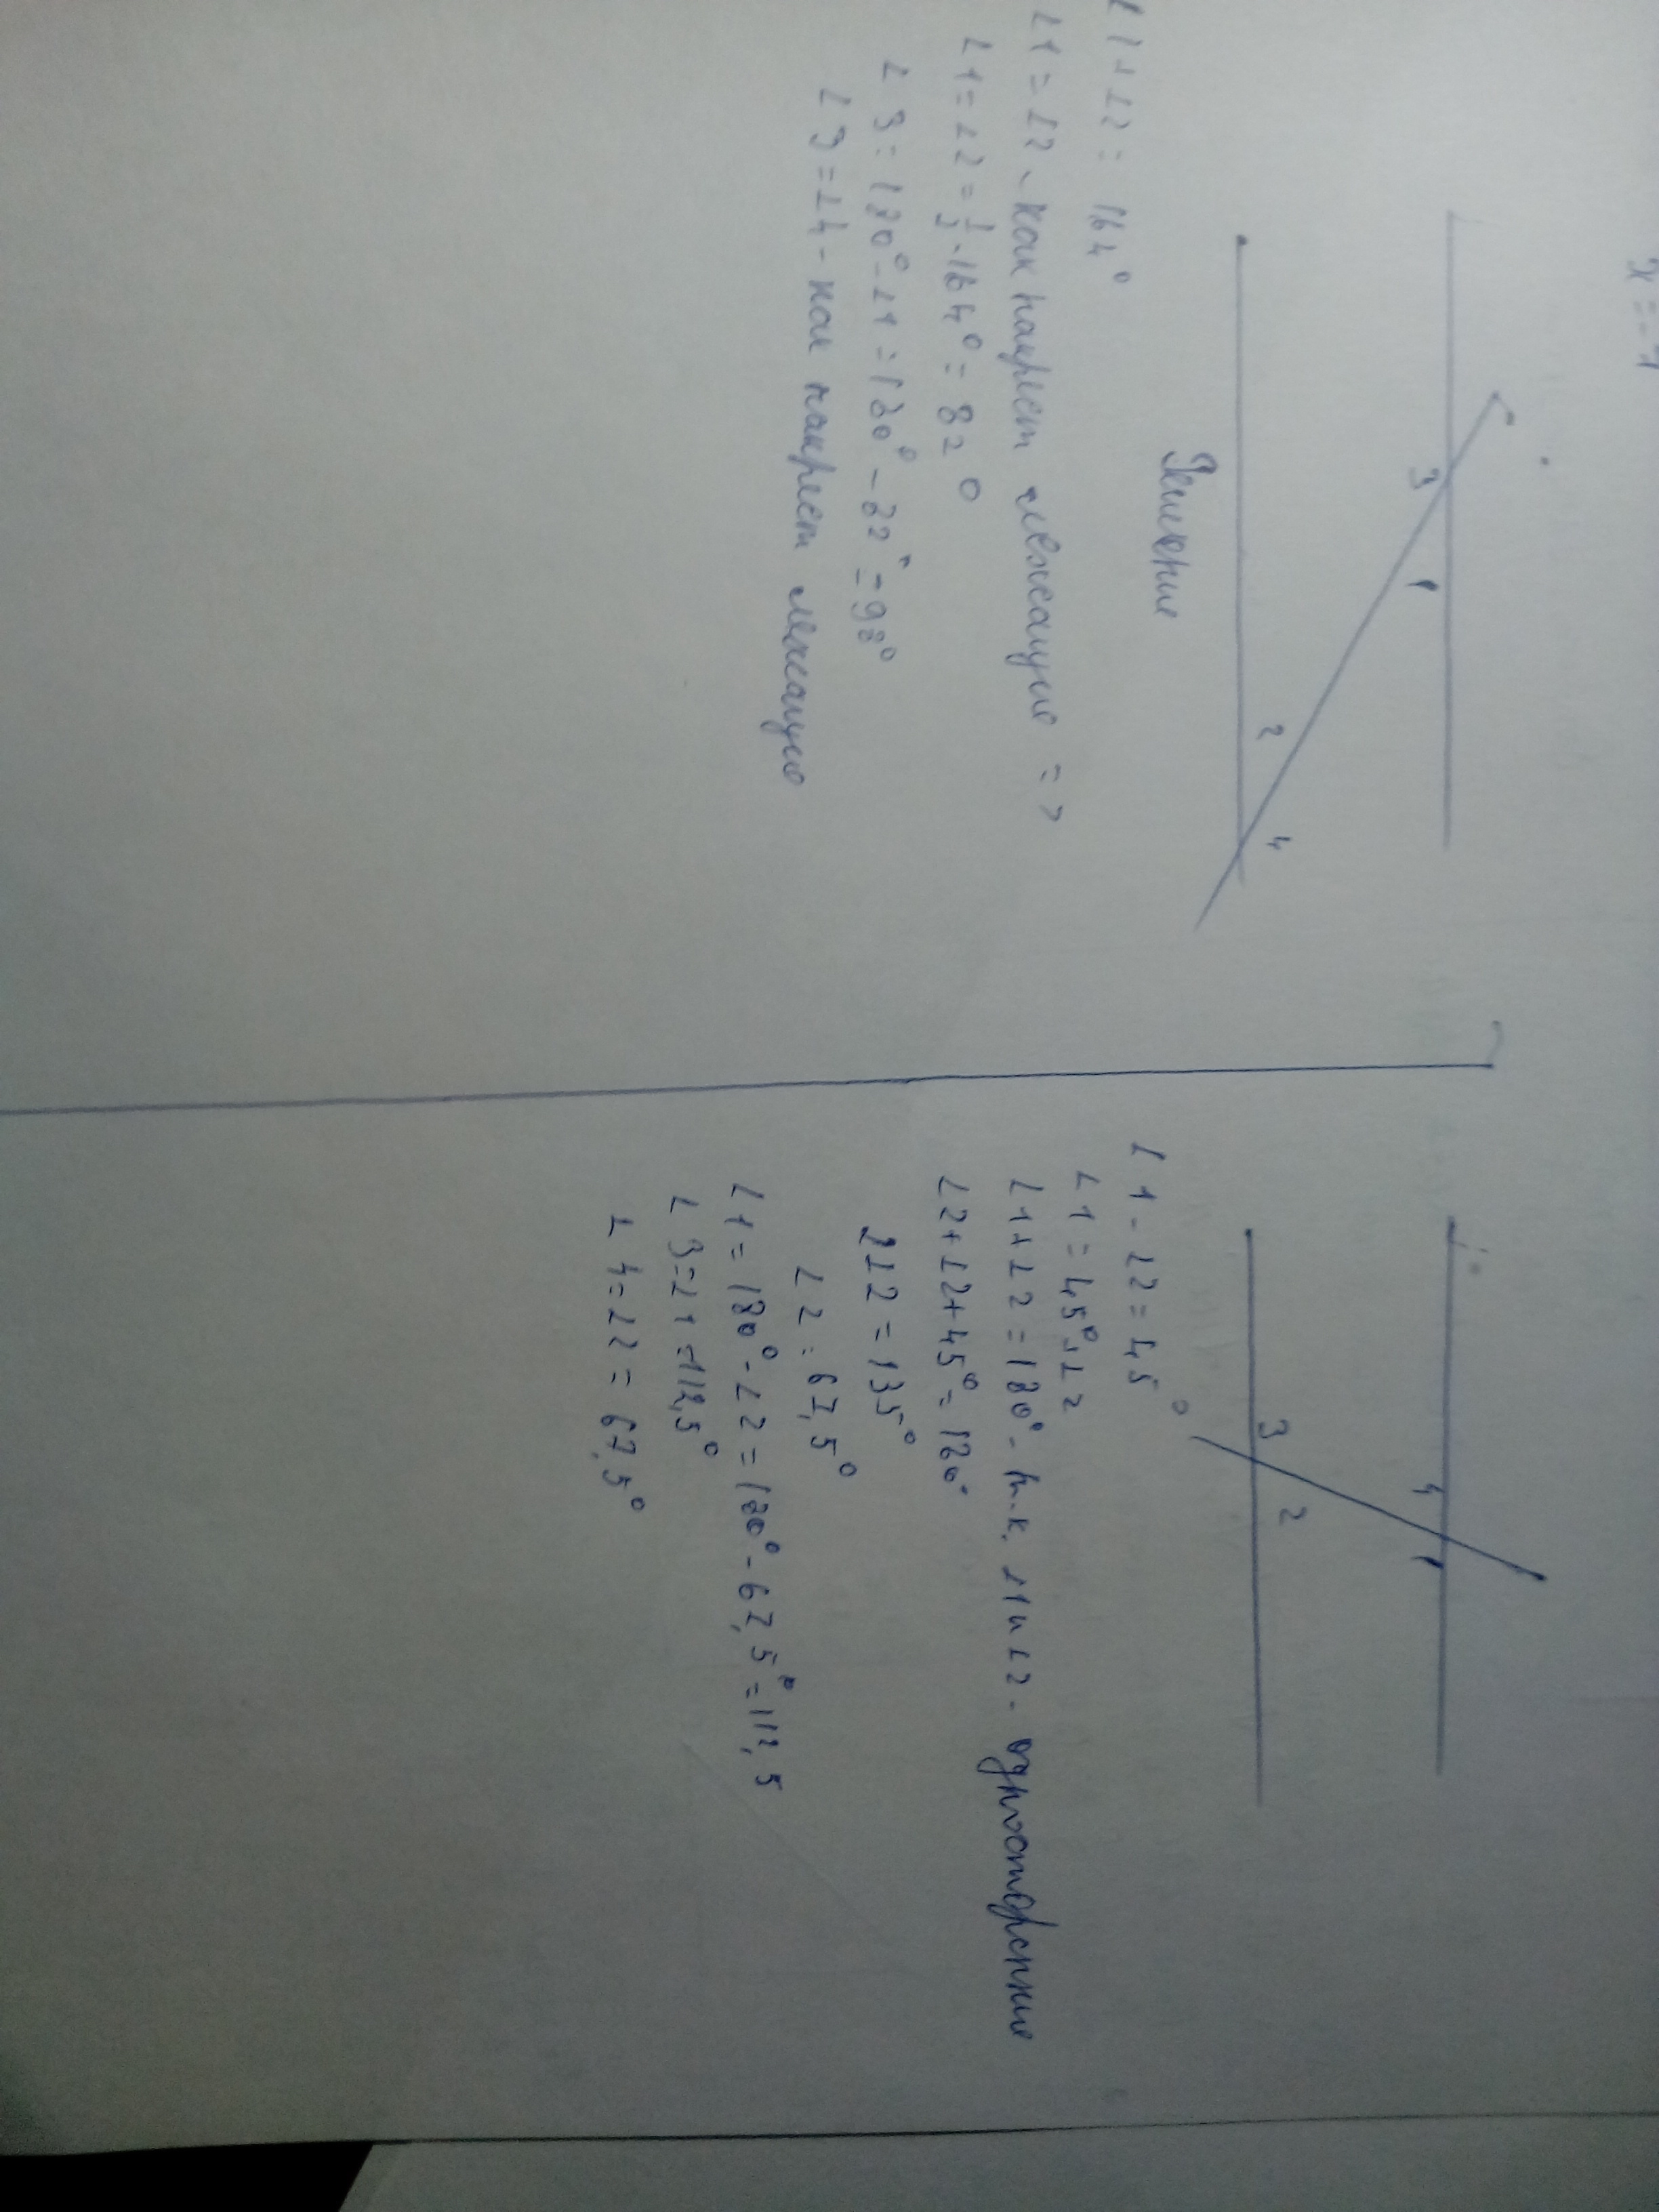 x = -7
3
1
2
4
Решение
∠1+∠2 = 164°
∠1 = ∠2 - как накрест лежащие =>
∠1 = ∠2 = 1/2 · 164° = 82°
∠3 = 180° - ∠1 = 180° - 82° = 98°
∠3 = ∠4 - как накрест лежащие
4
1
3
2
∠1 - ∠2 = 45°
∠1 = 45°+∠2
∠1+∠2 = 180° - т.к. ∠1 и ∠2 - односторонние
∠2+∠2+45° = 180°
2∠2 = 135°
∠2 = 67,5°
∠1 = 180° - ∠2 = 180° - 67,5° = 112,5
∠3 = ∠1 = 112,5°
∠4 = ∠2 = 67,5°